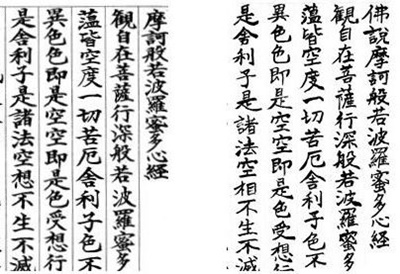 佛說摩訶般若波羅蜜多心經
觀自在菩薩行深般若波羅蜜多
蘊皆空度一切苦厄舍利子色不
異色色即是空空即是色受想行
是舍利子是諸法空相不生不滅
摩訶般若波羅蜜多心経
観自在菩薩行深般若波羅蜜多
薀皆空度一切苦厄舎利子色不
異色色即是空空即是色受想行
是舎利子是諸法空想不生不滅